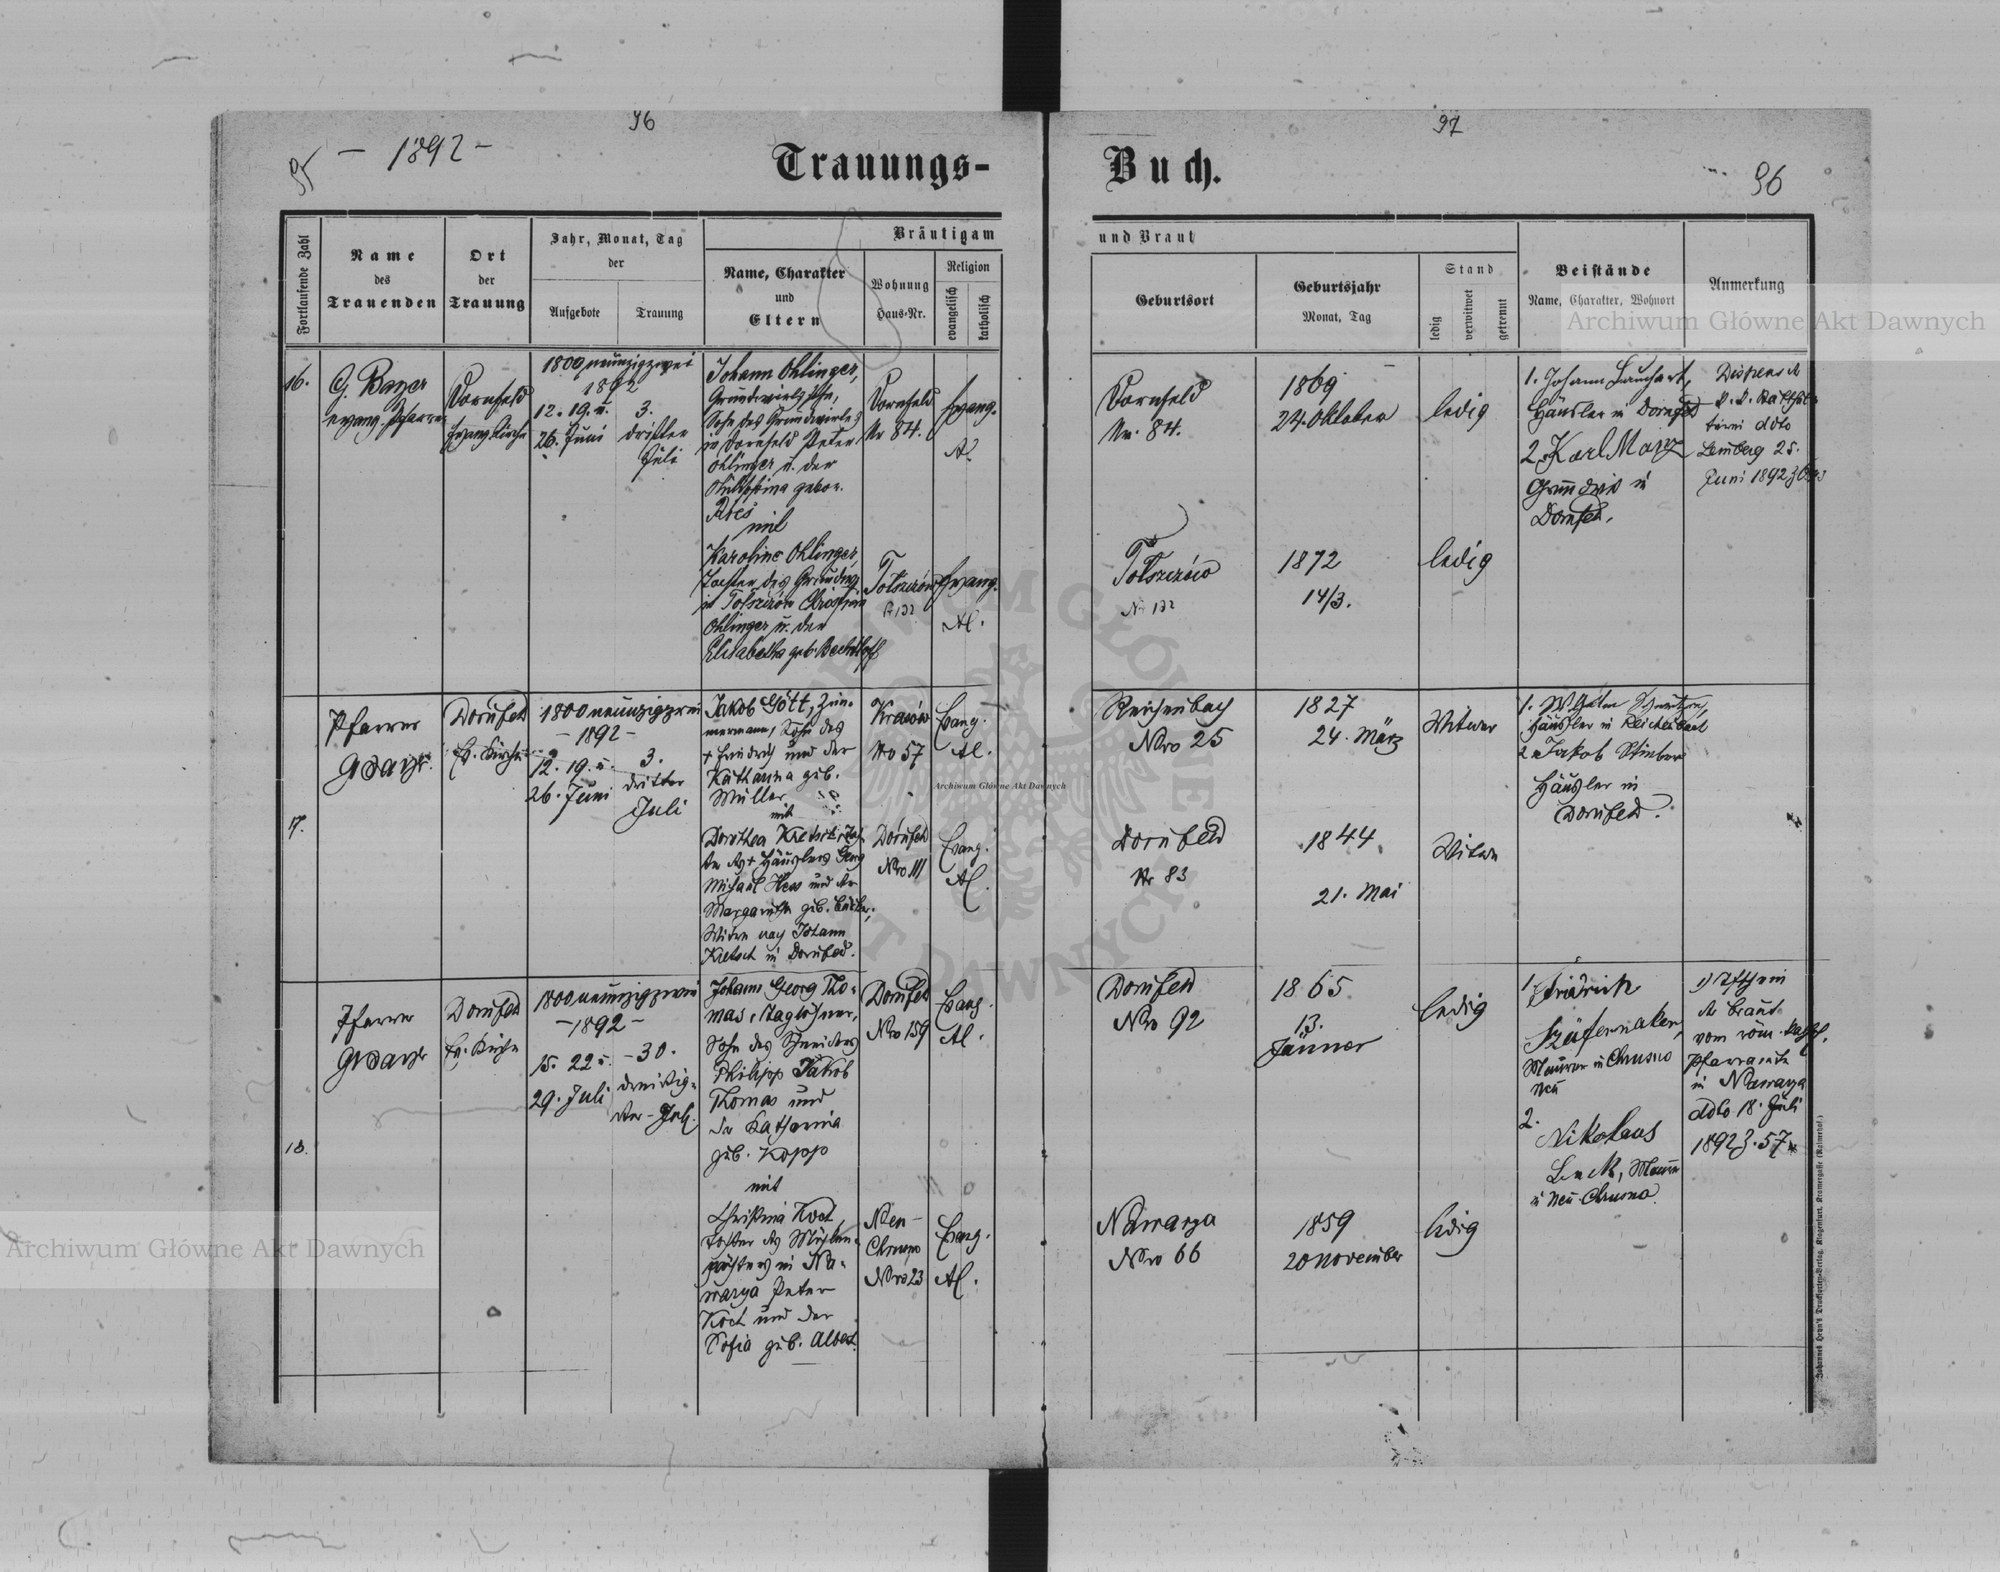 96
97
95
- 1892 -
Trauungs-
Buch.
96
Fortlaufende Zahl
Name
des
Trauenden
Ort
der
Trauung
Jahr, Monat, Tag
der
Aufgebote
Trauung
Bräutigam
und Braut
Name, Charakter
und
Eltern
Wohnung
Haus-Nr.
Religion
evangelisch
katholisch
Geburtsort
Geburtsjahr
Monat, Tag
Stand
ledig
verwitwet
getrennt
Beistände
Name, Charakter, Wohnort
Anmerkung
Archiwum Główne Akt Dawnych
16.
G. Bayer
evang. Pfarrer
Dornfeld
Evang. Kirche
1800 neunzigzwei
1892
12. 19. u.
26. Juni
3.
dritter
Juli
Johann Ohlinger,
Sohn des Grundwirtes
in Dornfeld Peter
Ohlinger u. der
gebor.
mit
Karoline Ohlinger,
Tochter des
in Tołszczów Christian
Ohlinger u. der
Elisabetha geb. Bechtloff
Dornfeld
Nr 84.
Evang.
A.
Tołszczów
Evang.
Al.
Dornfeld
Nr. 84.
1869
24. Oktober
ledig
Tołszczów
1872
14/3.
ledig
1. Johann
Häusler in Dornfeld
2. Karl Manz
Grundwirt in
Dornfeld.
Dispens d.
Lemberg 25.
Juni 1892
17.
Pfarrer
GBayer
Dornfeld
Ev. Kirche
1800 neunzigzwei
- 1892 -
12. 19. u.
26. Juni
3.
dritter
Juli
Jakob Gött, Zim-
mermann, Sohn des
+ Friedrich und der
Katharina geb.
Müller
mit
Dorothea Kretsch, Toch-
ter des + Häuslers Georg
Michael Hess und der
Margaretha geb.
Witwe nach Johann
Kretsch in Dornfeld.
Krasów
Nro 57
Evang.
Al.
Dornfeld
Nro 111
Evang.
Al.
Reichenbach
Nro 25
1827
24. März
Witwer
Dornfeld
Nr 83
1844
21. Mai
Witwe
1.
Häusler in Reichenbach
2. Jakob
Häusler in
Dornfeld.
Archiwum Główne Akt Dawnych
18.
Pfarrer
GBayer
Dornfeld
Ev. Kirche
1800 neunzigzwei
- 1892 -
15. 22 u.
29. Juli
- 30. -
dreißig-
ster - Juli
Johann Georg Tho-
mas, Taglöhner,
Sohn des Schneiders
Philipp Jakob
Thomas und
der Katharina
geb. Kopp
mit
Christina Koch,
Tochter des Mühlen-
pächters in Na-
warya Peter
Koch und der
Sofia geb. Albert.
Dornfeld
Nro 159
Evang.
Al.
Neu-
Chrusno
Nro 23
Evang.
Al.
Dornfeld
Nro 92
1865
13.
Jänner
ledig
Nawarya
Nro 66
1859
20 November
ledig
1. Fridrich
Maurer in Chrusno
Neu
2. Nikolaus
Maurer
in Neu-Chrusno
der Braut
vom röm. kathol.
Pfarramte
in Nawarya
ddto 18. Juli
1892 Z. 57
Johannes Heyn's Drucksorten-Verlag, Klagenfurt, Kramergasse
Archiwum Główne Akt Dawnych
ARCHIWUM GŁÓWNE
AKT DAWNYCH